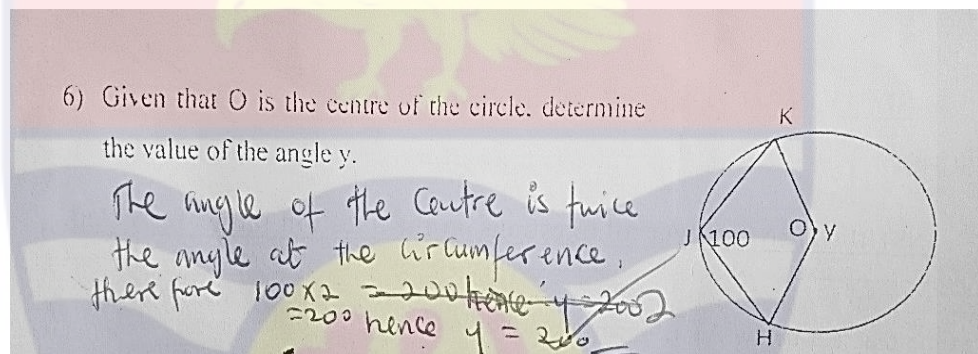 6) Given that O is the centre of the circle. determine
the value of the angle y.
The angle of the Centre is twice
the angle at the circumference,
there fore 100 x 2 = 200 hence y = 200
= 200 hence y = 200
K
J 100 O y
H